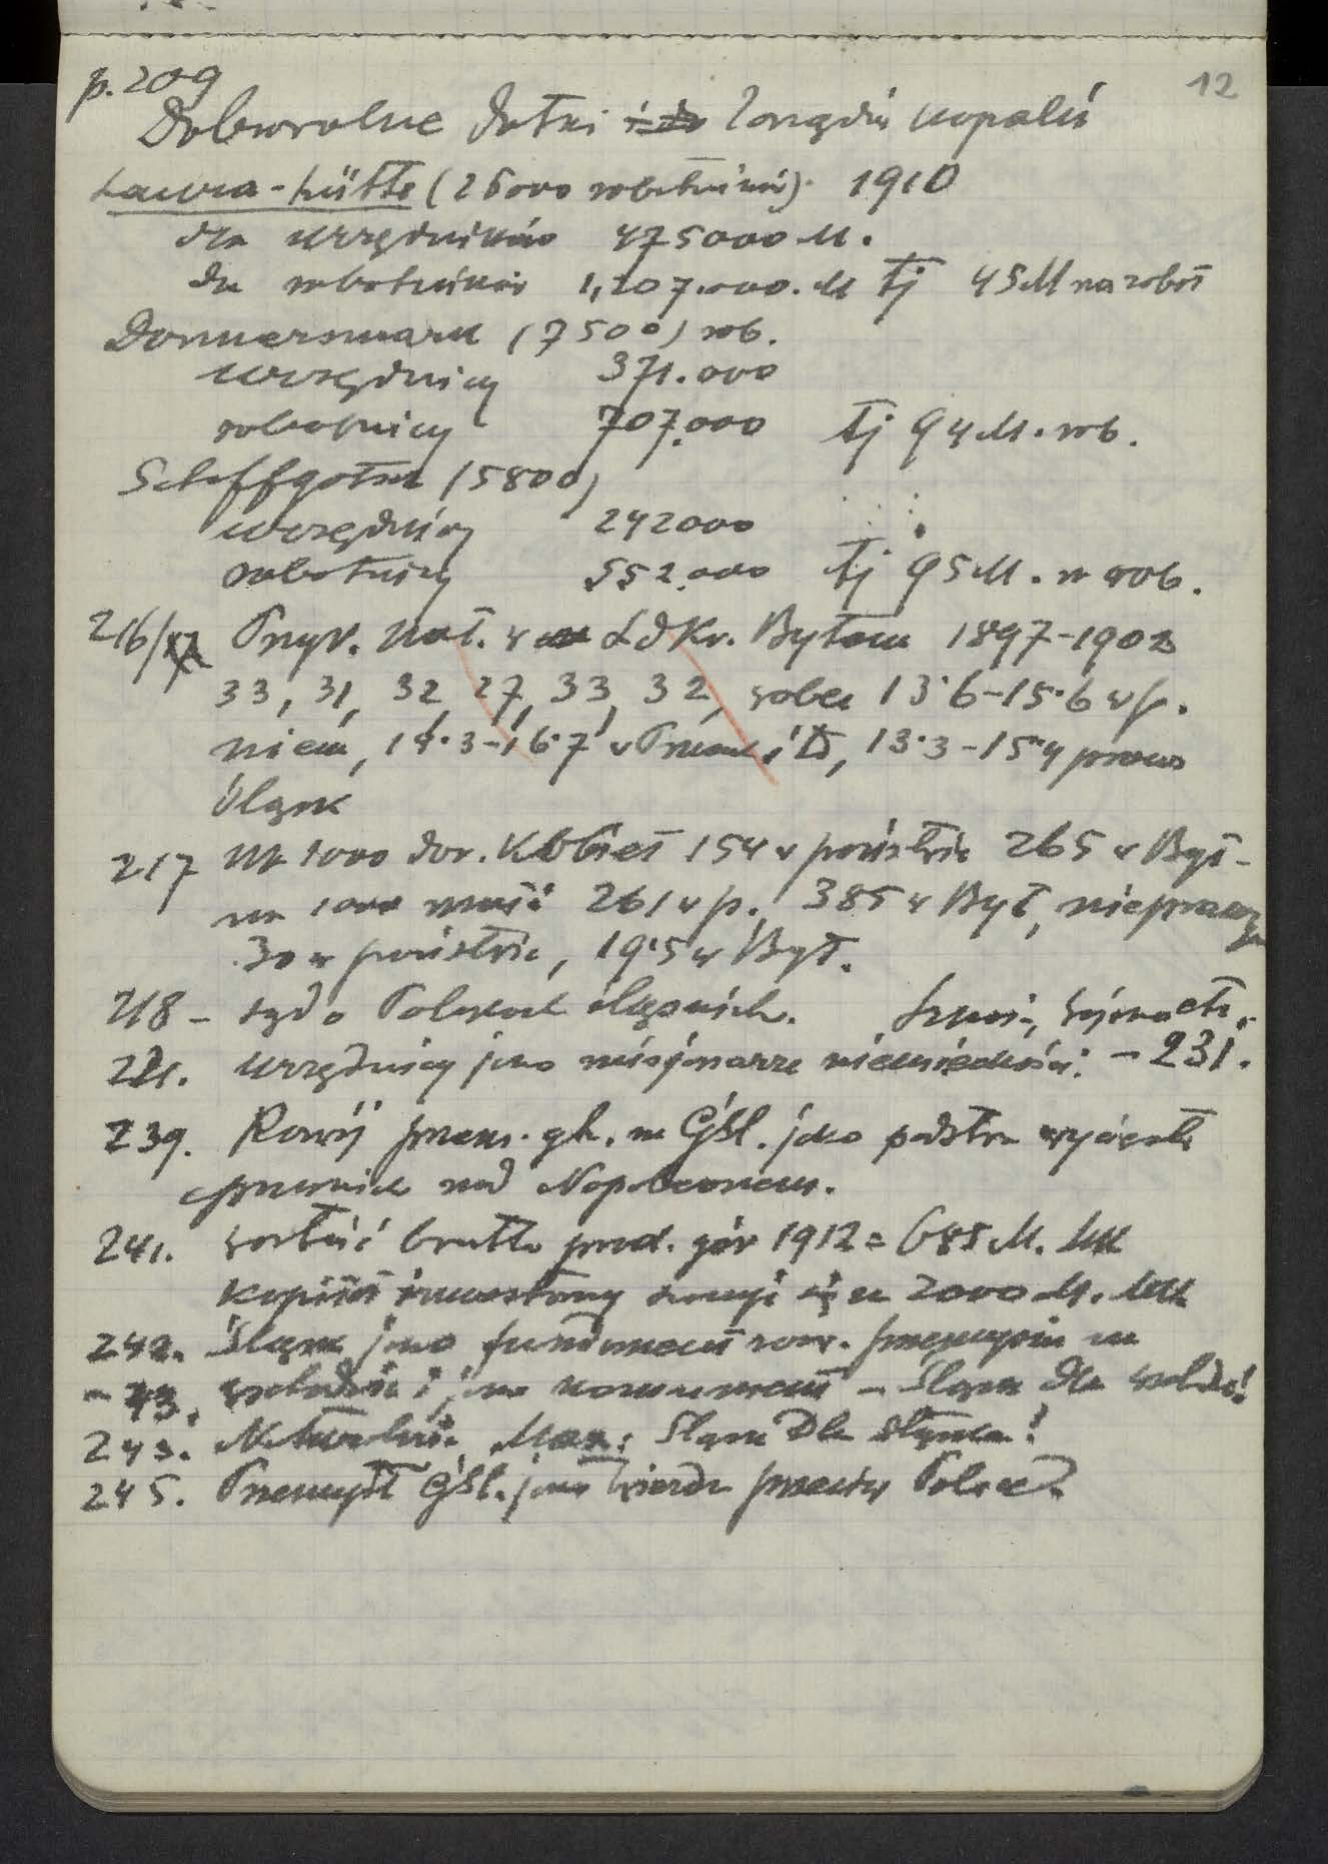 p. 209
12
Dobrowolne datki Zarządów kopalń
Laura-Hütte (26000 robotników). 1910
dla urzędników 475000 M.
dla robotników 1,207.000. M tj 45M na robot
Donnersmark (7500) rob.
urzędnicy 371.000
robotnicy 707.000 tj 94 M. rob.
Schaffgotsch (5800)
urzędnicy 242000
robotnicy 552.000 tj 95 M. n rob.
216/ Przyr. nat. w LdKr. Bytom 1897-1902
33, 31, 32, 27, 33, 32, wobec 13·6-15·6 w p.
niem, 14·3-16·7 w , 13·3-15·4 prow
Śląsk
217 na 1000 dor. Kobiet 154 w państwie 265 w Byt-
na 1000 261 w p. 385 w Byt, niepracuj
30 w państwie, 19·5 w Byt.
218 - sąd o Polakach śląskich. etc.
221. urzędnicy jako misjonarze niemieckości. - 231.
239. Rozwój przem. gh. na GŚl. jako podstawa
nad Napoleonem.
241. wartość brutto prod. gór 1912 = 685 M. Mk
kapitał inwestowany na 2000 M. Mk
242. Śląsk jako fundament rozw. przemysłu na
- 43. wschodzie i jako - Śląsk dla
243. Śląsk dla Śląska!
245. Przemysł GŚl. jako twierdza przeciw